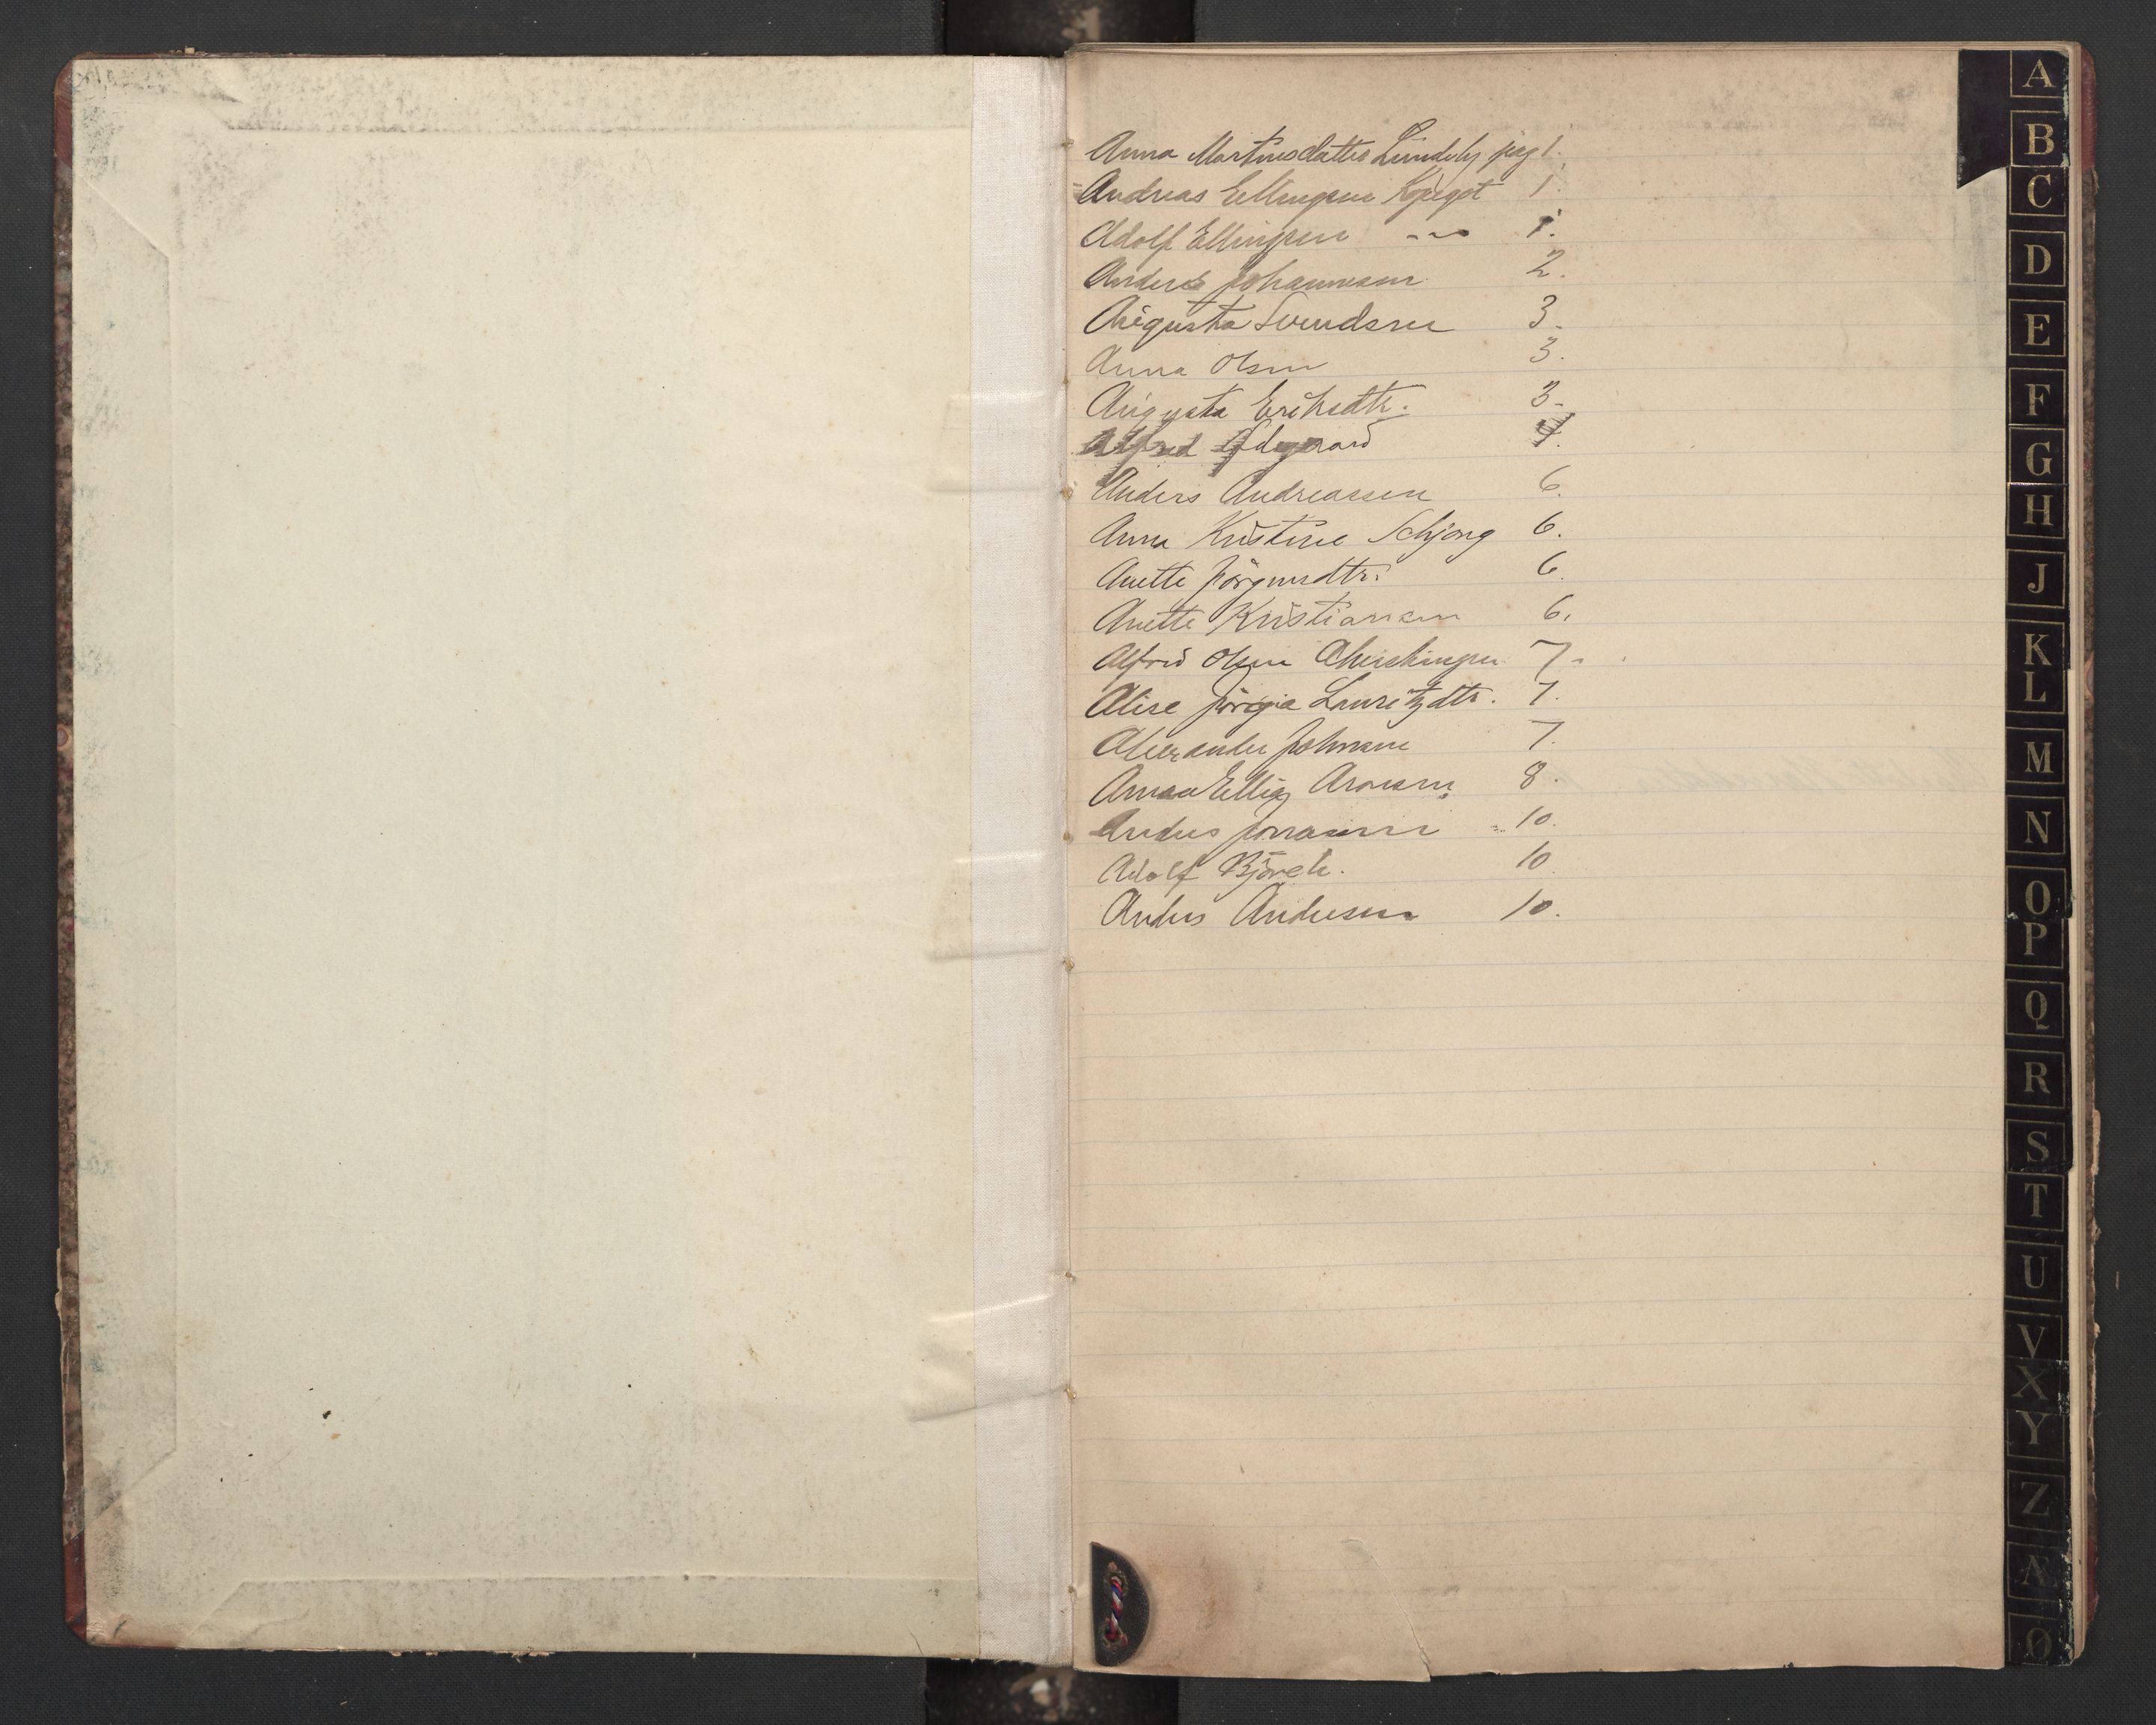 Anna Martinsdatter Lundely pag 1.
Andreas Ellingsen 1.
Adolf Ellingsen -"- 1.
Anders Johannesen 2.
Augusta Svendsen 3.
Anna Olsen 3.
Augusta Eriksdtr. 3.
Alfred 4.
Anders Andreassen 6.
Anna Kristine Schjong 6.
Anette Jörgensdtr. 6.
Anette Kristiansen 6.
Alfred Olsen 7.
Alise Lauritzdtr. 7.
Alexander Johnsen 7.
Anna Ellig Aronsen 8.
Anders Jonassen 10.
Adolf Björck. 10
Anders Andersen 10.
A
B
C
D
E
F
G
H
J
K
L
M
N
O
P
Q
R
S
T
U
V
X
Y
Z
Æ
Ø